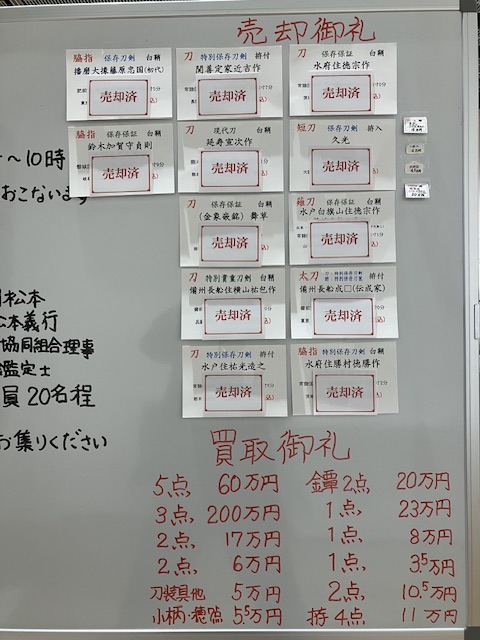 売却御礼
脇指 保存刀剣 白鞘
播磨大掾藤原忠国(初代)
売却済
刀 特別保存刀剣 拵付
関善定家近吉作
売却済
刀 保存保証 白鞘
水府住徳宗作
売却済
脇指 保存保証 白鞘
鈴木加賀守貞則
売却済
刀 現代刀 白鞘
延寿宣次作
売却済
短刀 保存刀剣 拵入
久光
売却済
刀 保存保証 白鞘
(金象嵌銘) 舞草
売却済
薙刀 保存保証 白鞘
水戸白旗山住徳宗作
売却済
刀 特別貴重刀剣 白鞘
備州長船住横山祐包作
売却済
太刀 拵付
備州長船成□(伝成家)
売却済
刀 特別保存刀剣 拵付
水戸住祐光造之
売却済
脇指 特別保存刀剣 白鞘
水府住勝村徳勝作
売却済
~10時
おこないます
松本
本義行
協同組合理事
鑑定士
員20名程
お集りください
買取御礼
5点 60万円
3点 200万円
2点 17万円
2点 6万円
刀装具他 5万円
小柄・穂先 5.5万円
鐔2点 20万円
1点 23万円
1点 8万円
1点 3.5万円
2点 10.5万円
拵4点 11万円